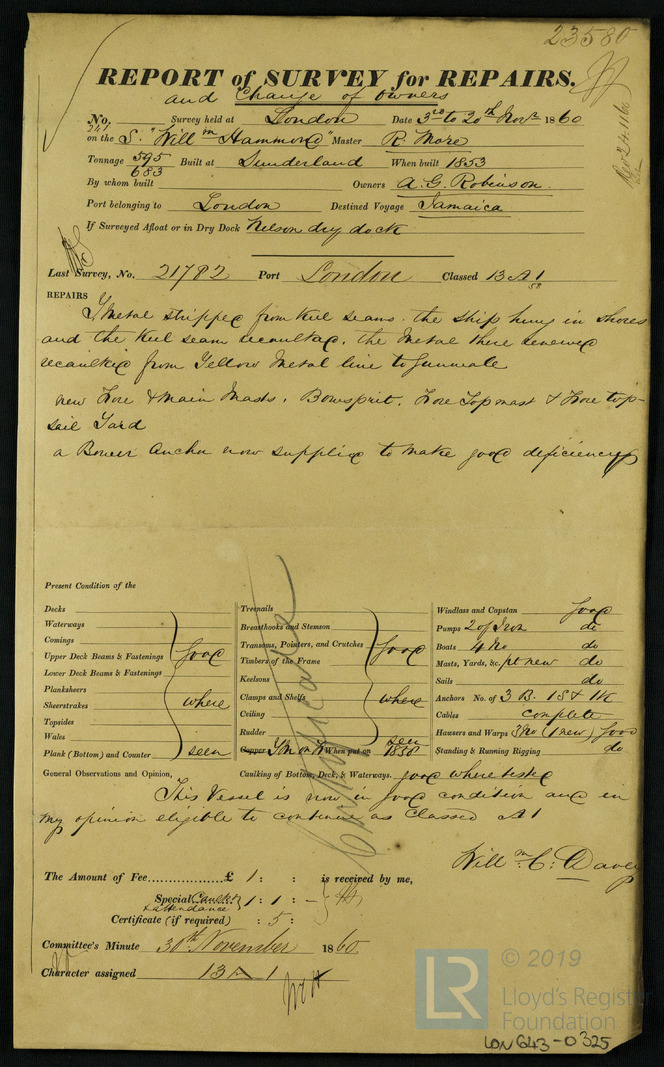 23580
REPORT of SURVEY for REPAIRS.
and Change of Owners
No. 241 Survey held at London Date 3rd to 20th Novr 1860
on the S. "Willm Hammond" Master R. More
Tonnage 595 Built at Sunderland When built 1853
683
By whom built Owners A. G. Robinson.
Port belonging to London Destined Voyage Jamaica
If Surveyed Afloat or in Dry Dock Nelson dry dock
Last Survey, No. 21782 Port London Classed 13 A 1
58
REPAIRS
Y Metal stripped from Keel seams. the ship hung in shores
and the Keel seam recaulked, the Metal there renewed
recaulked from Yellow Metal line to Gunwale
new Fore & Main Masts. Bowsprit. Fore Topmast & Fore top-
sail Yard
a Bower Anchor now supplied to make good deficiency
Present Condition of the
Decks
Waterways
Comings
Upper Deck Beams & Fastenings good
Lower Deck Beams & Fastenings
Planksheers
Sheerstrakes where
Topsides
Wales
Plank (Bottom) and Counter seen
Treenails
Breasthooks and Stemson
Transoms, Pointers, and Crutches good
Timbers of the Frame
Keelsons
Clamps and Shelfs where
Ceiling
Rudder seen
Copper YM on It When put on 1858
Windlass and Capstan good
Pumps 2 of Iron do
Boats 4 No do
Masts, Yards, &c. pt new do
Sails do
Anchors No. of 3 B. 1 S & 1 K
Cables complete
Hausers and Warps 3 No (1 new) good
Standing & Running Rigging do
Certificate
General Observations and Opinion, Caulking of Bottom, Deck, & Waterways. good where tested
This Vessel is now in good condition and in
my opinion eligible to continue as Classed A1
Willm. C: Davey
The Amount of Fee £ 1 : : is received by me,
Special Caulkg & attendance 1 : 1 : -
Certificate (if required) : 5 :
Committee's Minute 30th November 1860
Character assigned 13 A 1
LR
© 2019
Lloyd's Register
Foundation
LON643-0325